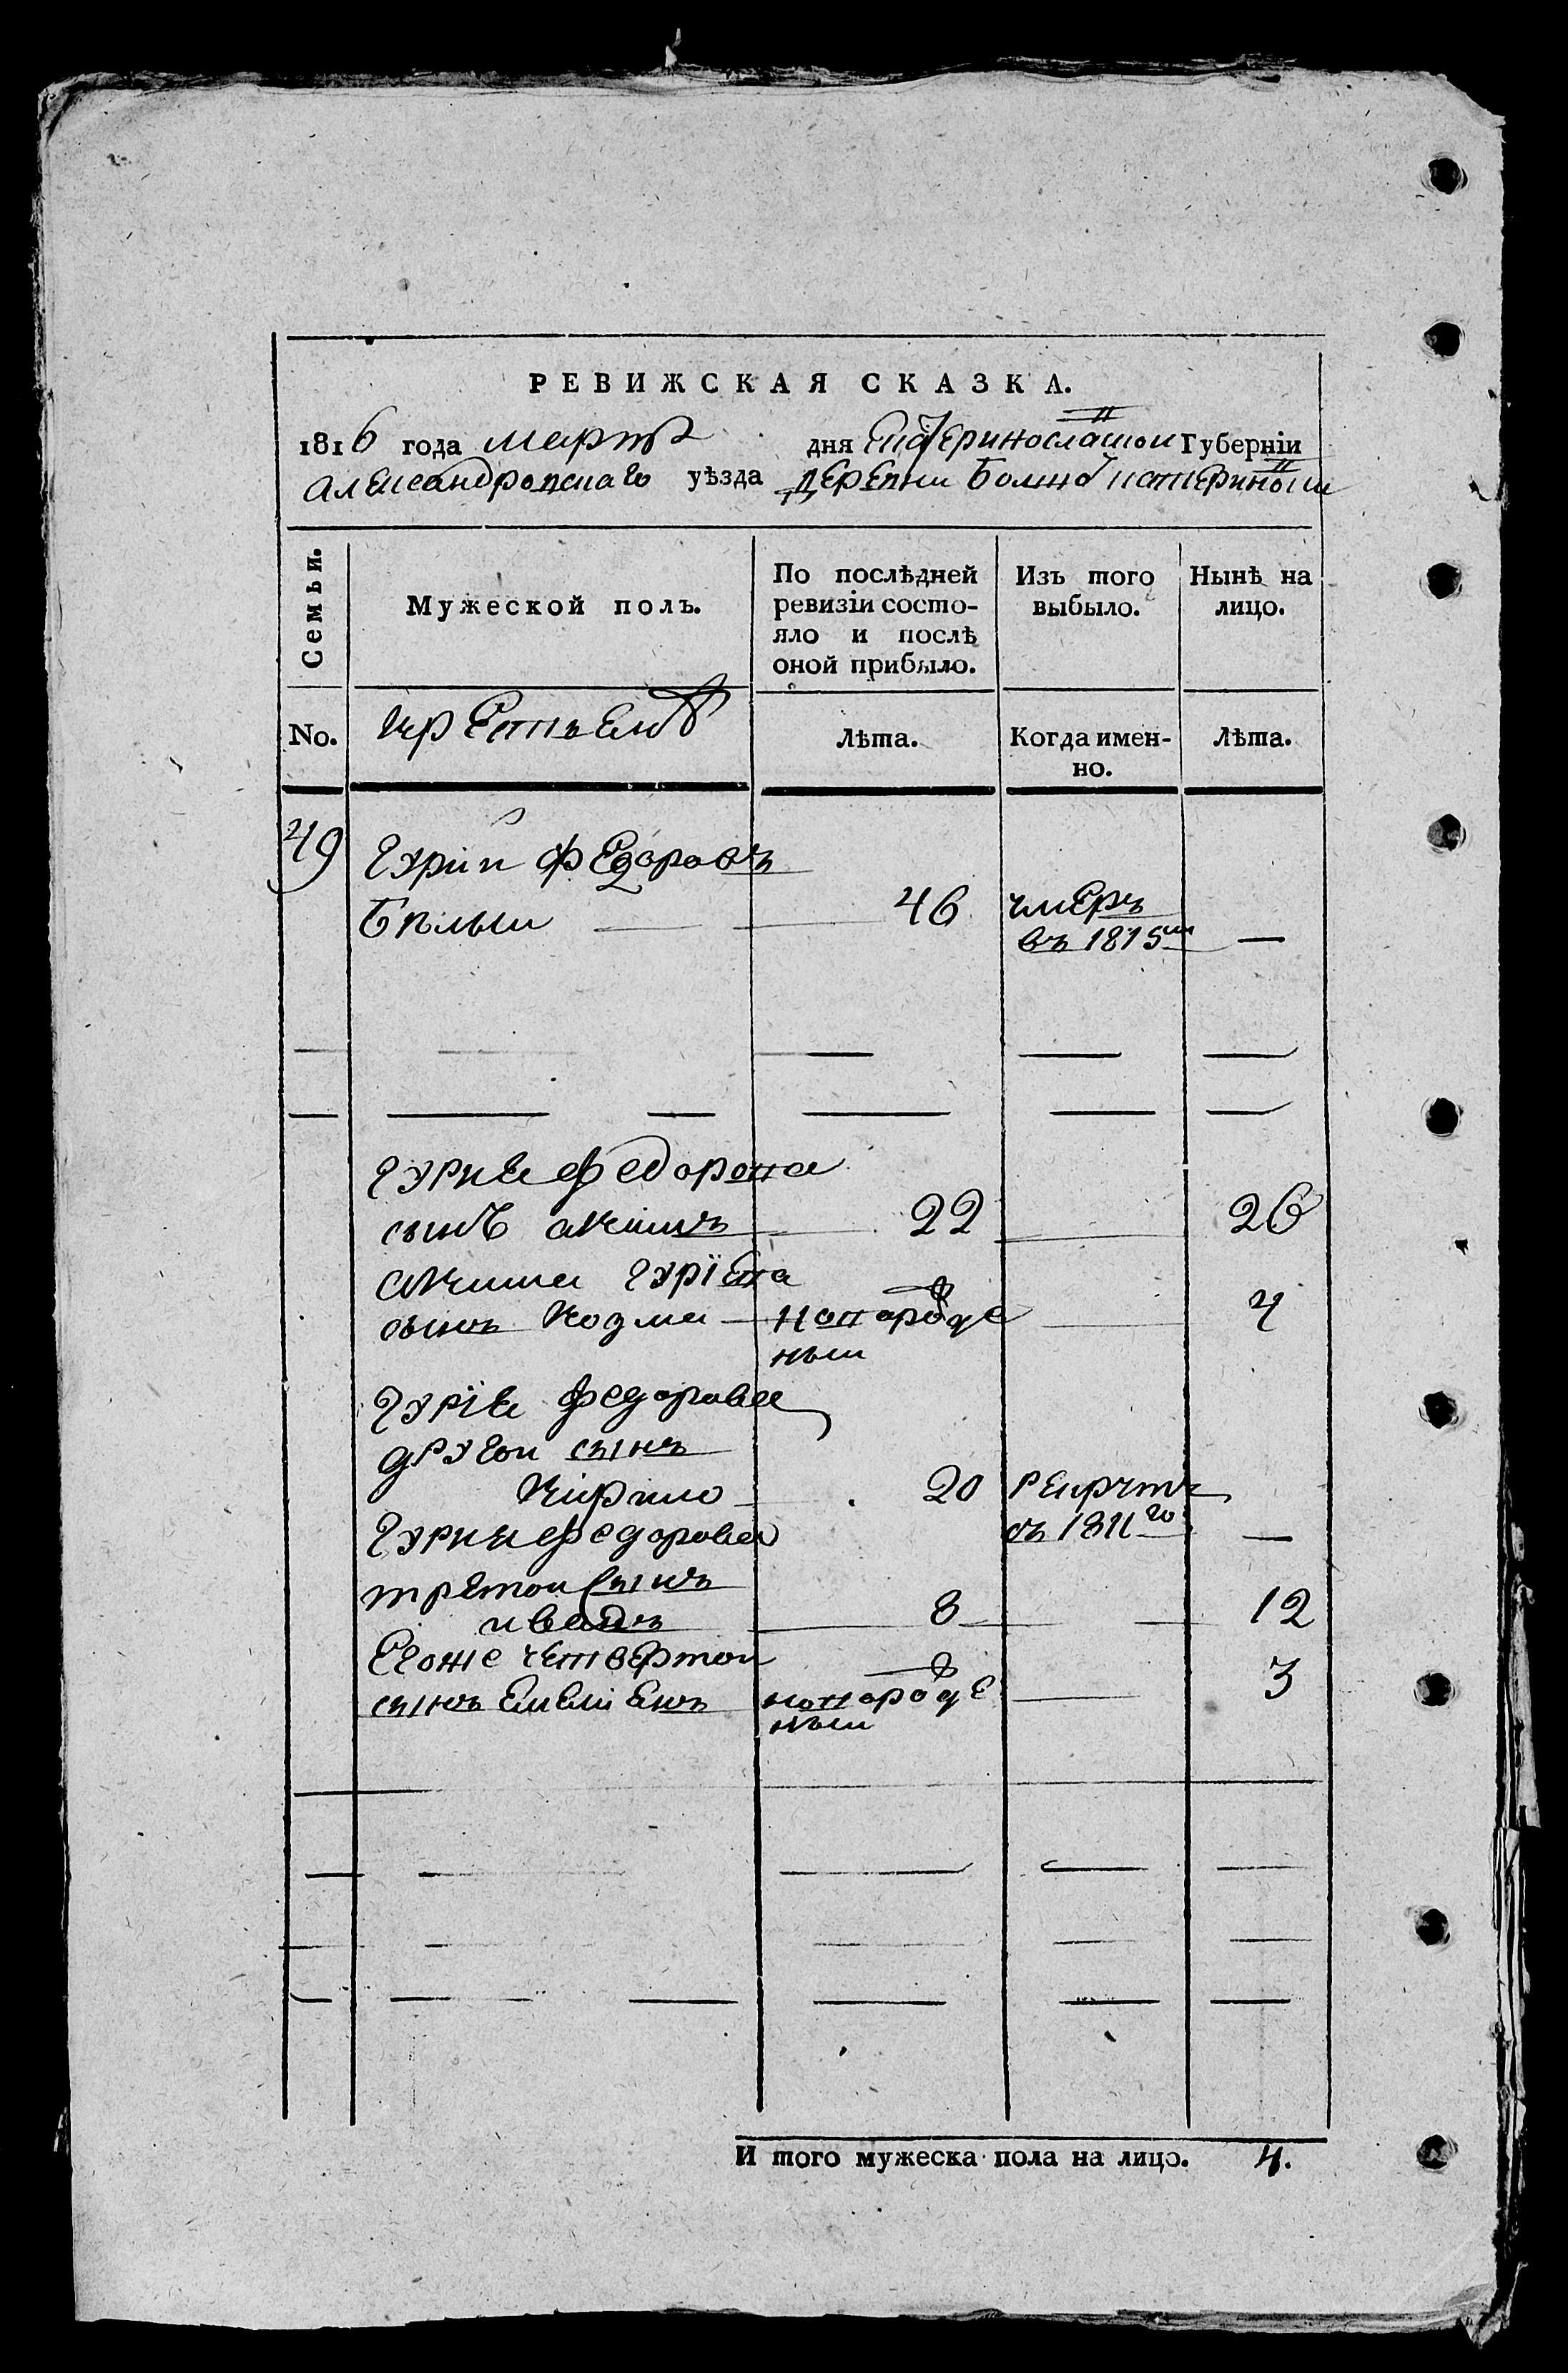 РЕВИЖСКАЯ СКАЗКА.
1816 года марта дня Екатеринославской Губерніи
Александровскаго уѣзда деревни Больно
Семьи.
Мужеской полъ.
По послѣдней ревизіи состо-
яло и послѣ
оной прибыло.
Изъ того
выбыло.
Нынѣ на
лицо.
No.
Лѣта.
Когда имен-
но.
Лѣта.
49 Гурій Федоровъ
46 умеръ
въ 1815м —
Гурия Федорова
сынъ Акимъ 22 26
Акима Гуріева
сынъ Козма новороже 4
ным
Гурія Федорова
другои сынъ
Кирило 20 рекрутъ
Гурия Федорова въ 1811го —
третои сынъ
иванъ 8 12
Егоже четвертои
сынъ Емелиянъ новороже 3
ным
И того мужеска пола на лицо. 4.